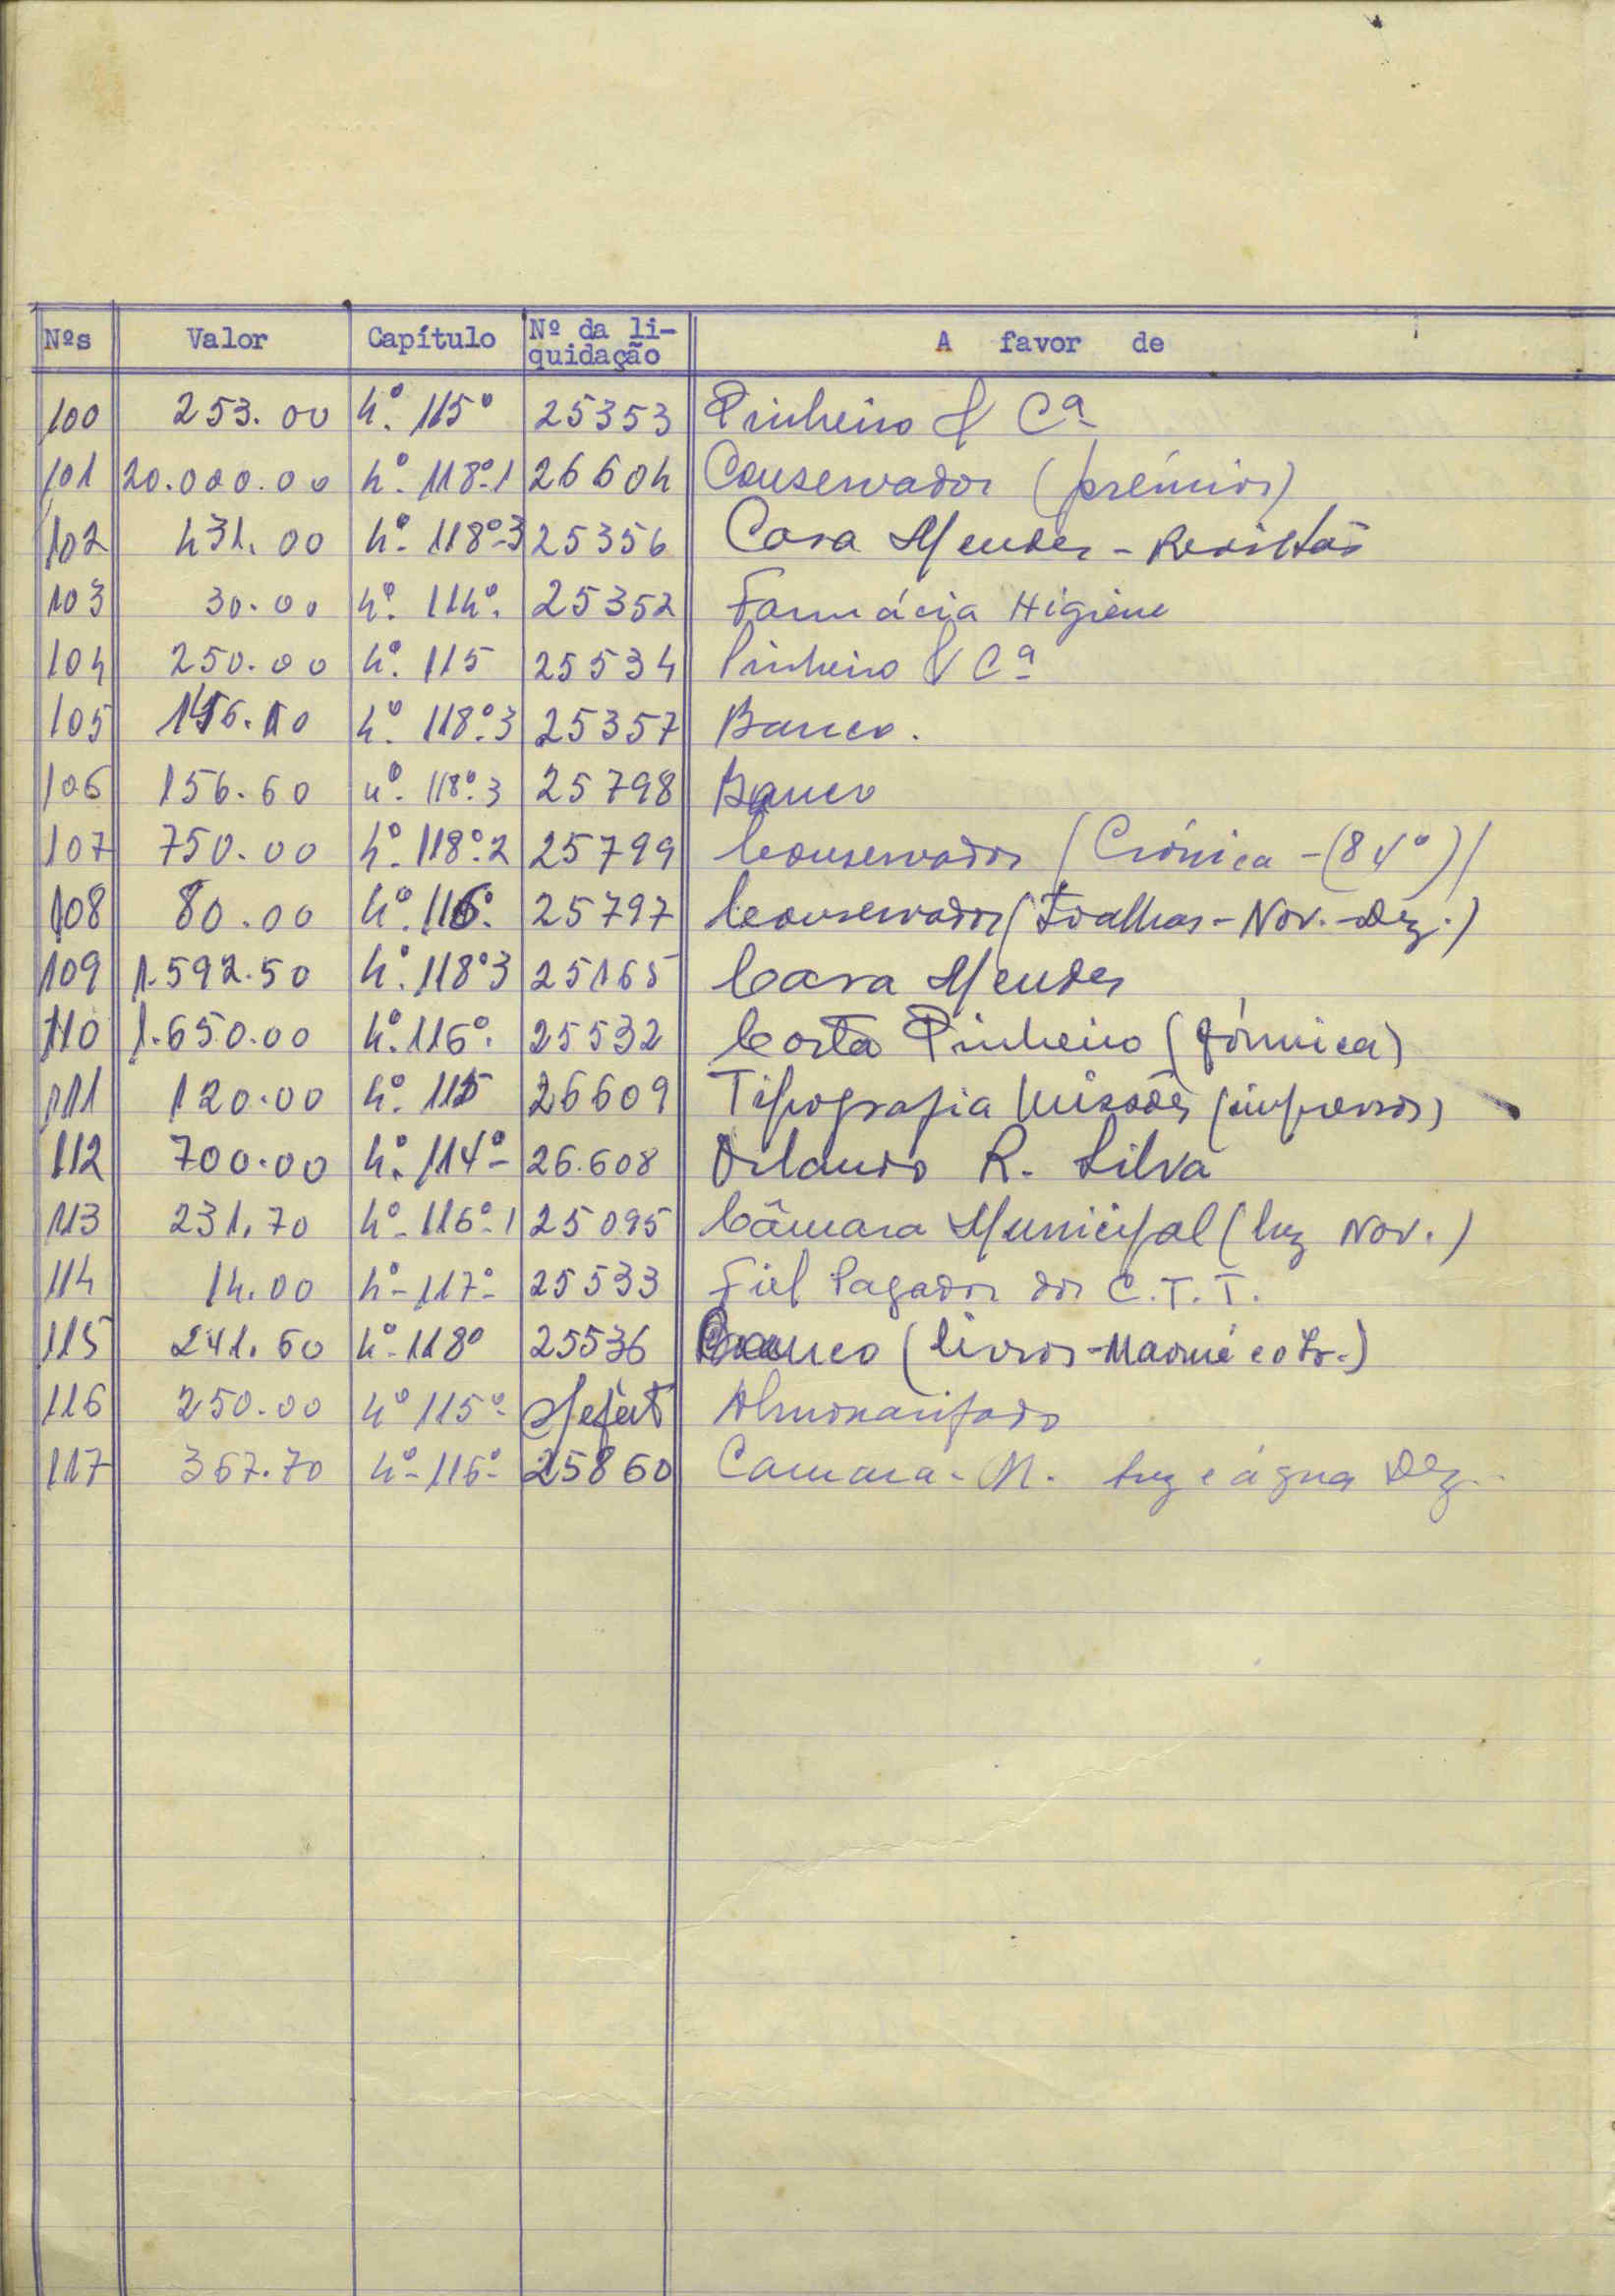 Nºs Valor Capítulo Nº da li-quidação A favor de
100 253.00 4º. 115º 25353 Pinheiro & Cª
101 20.000.00 4º. 118º-1 26604 Conservador (prémios)
102 431.00 4º. 118º-3 25356 Casa Mendes - Revistas
103 30.00 4º. 114º. 25352 Farmácia Higiene
104 250.00 4º. 115 25534 Pinheiro & Cª
105 4º. 118º.3 25357 Banco.
106 156.60 4º. 118º.3 25798 Banco
107 750.00 4º. 118º.2 25799 Conservador (Crónica - (84º))
108 80.00 4º. 116º. 25797 Conservador (Toalhas - Nov. - Dez.)
109 1.592.50 4º. 118º3 25165 Casa Mendes
110 1.650.00 4º. 116º. 25532 Costa Pinheiro (fórmica)
111 120.00 4º. 115 26609 Tipografia Missões (impressos)
112 700.00 4º. 114º- 26.608 Orlando R. Silva
113 231.70 4º- 116º-1 25095 Câmara Municipal (luz Nov.)
114 14.00 4º- 117º- 25533 Fiel Pagador dos C.T.T.
115 241.60 4º- 118º 25536 Banco (livros - Maomé
116 250.00 4º 115º- Almoxarifado
117 367.70 4º- 116º- 25860 Camara - M. luz e água Dez..